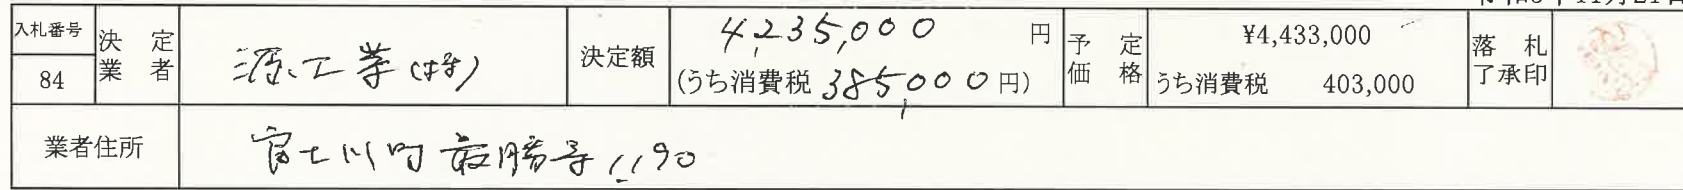 入札番号
84
決定業者
源工業(株)
決定額
4,235,000 円
(うち消費税 385,000 円)
予定価格
¥4,433,000
うち消費税 403,000
落札了承印
業者住所
富士川町最勝寺1190